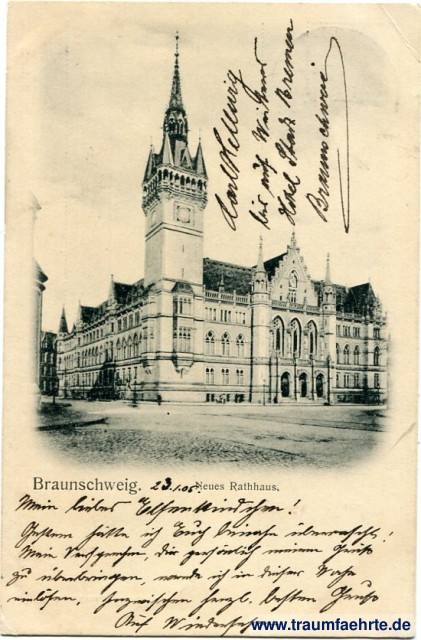 Karl Hellwig
bis auf Weiteres
Hotel Stadt Bremen
Braunschweig
Braunschweig. 23.1.05. Neues Rathhaus.
Mein liebes Elfenkindchen!
Gestern hätte ich Euch beinahe überrascht!
Mein Versprechen, Dir persönlich meinen Gruß
zu überbringen, werde ich in dieser Woche
einlösen. Inzwischen herzl. besten Gruß
Auf Wiedersehen
www.traumfaehrte.de